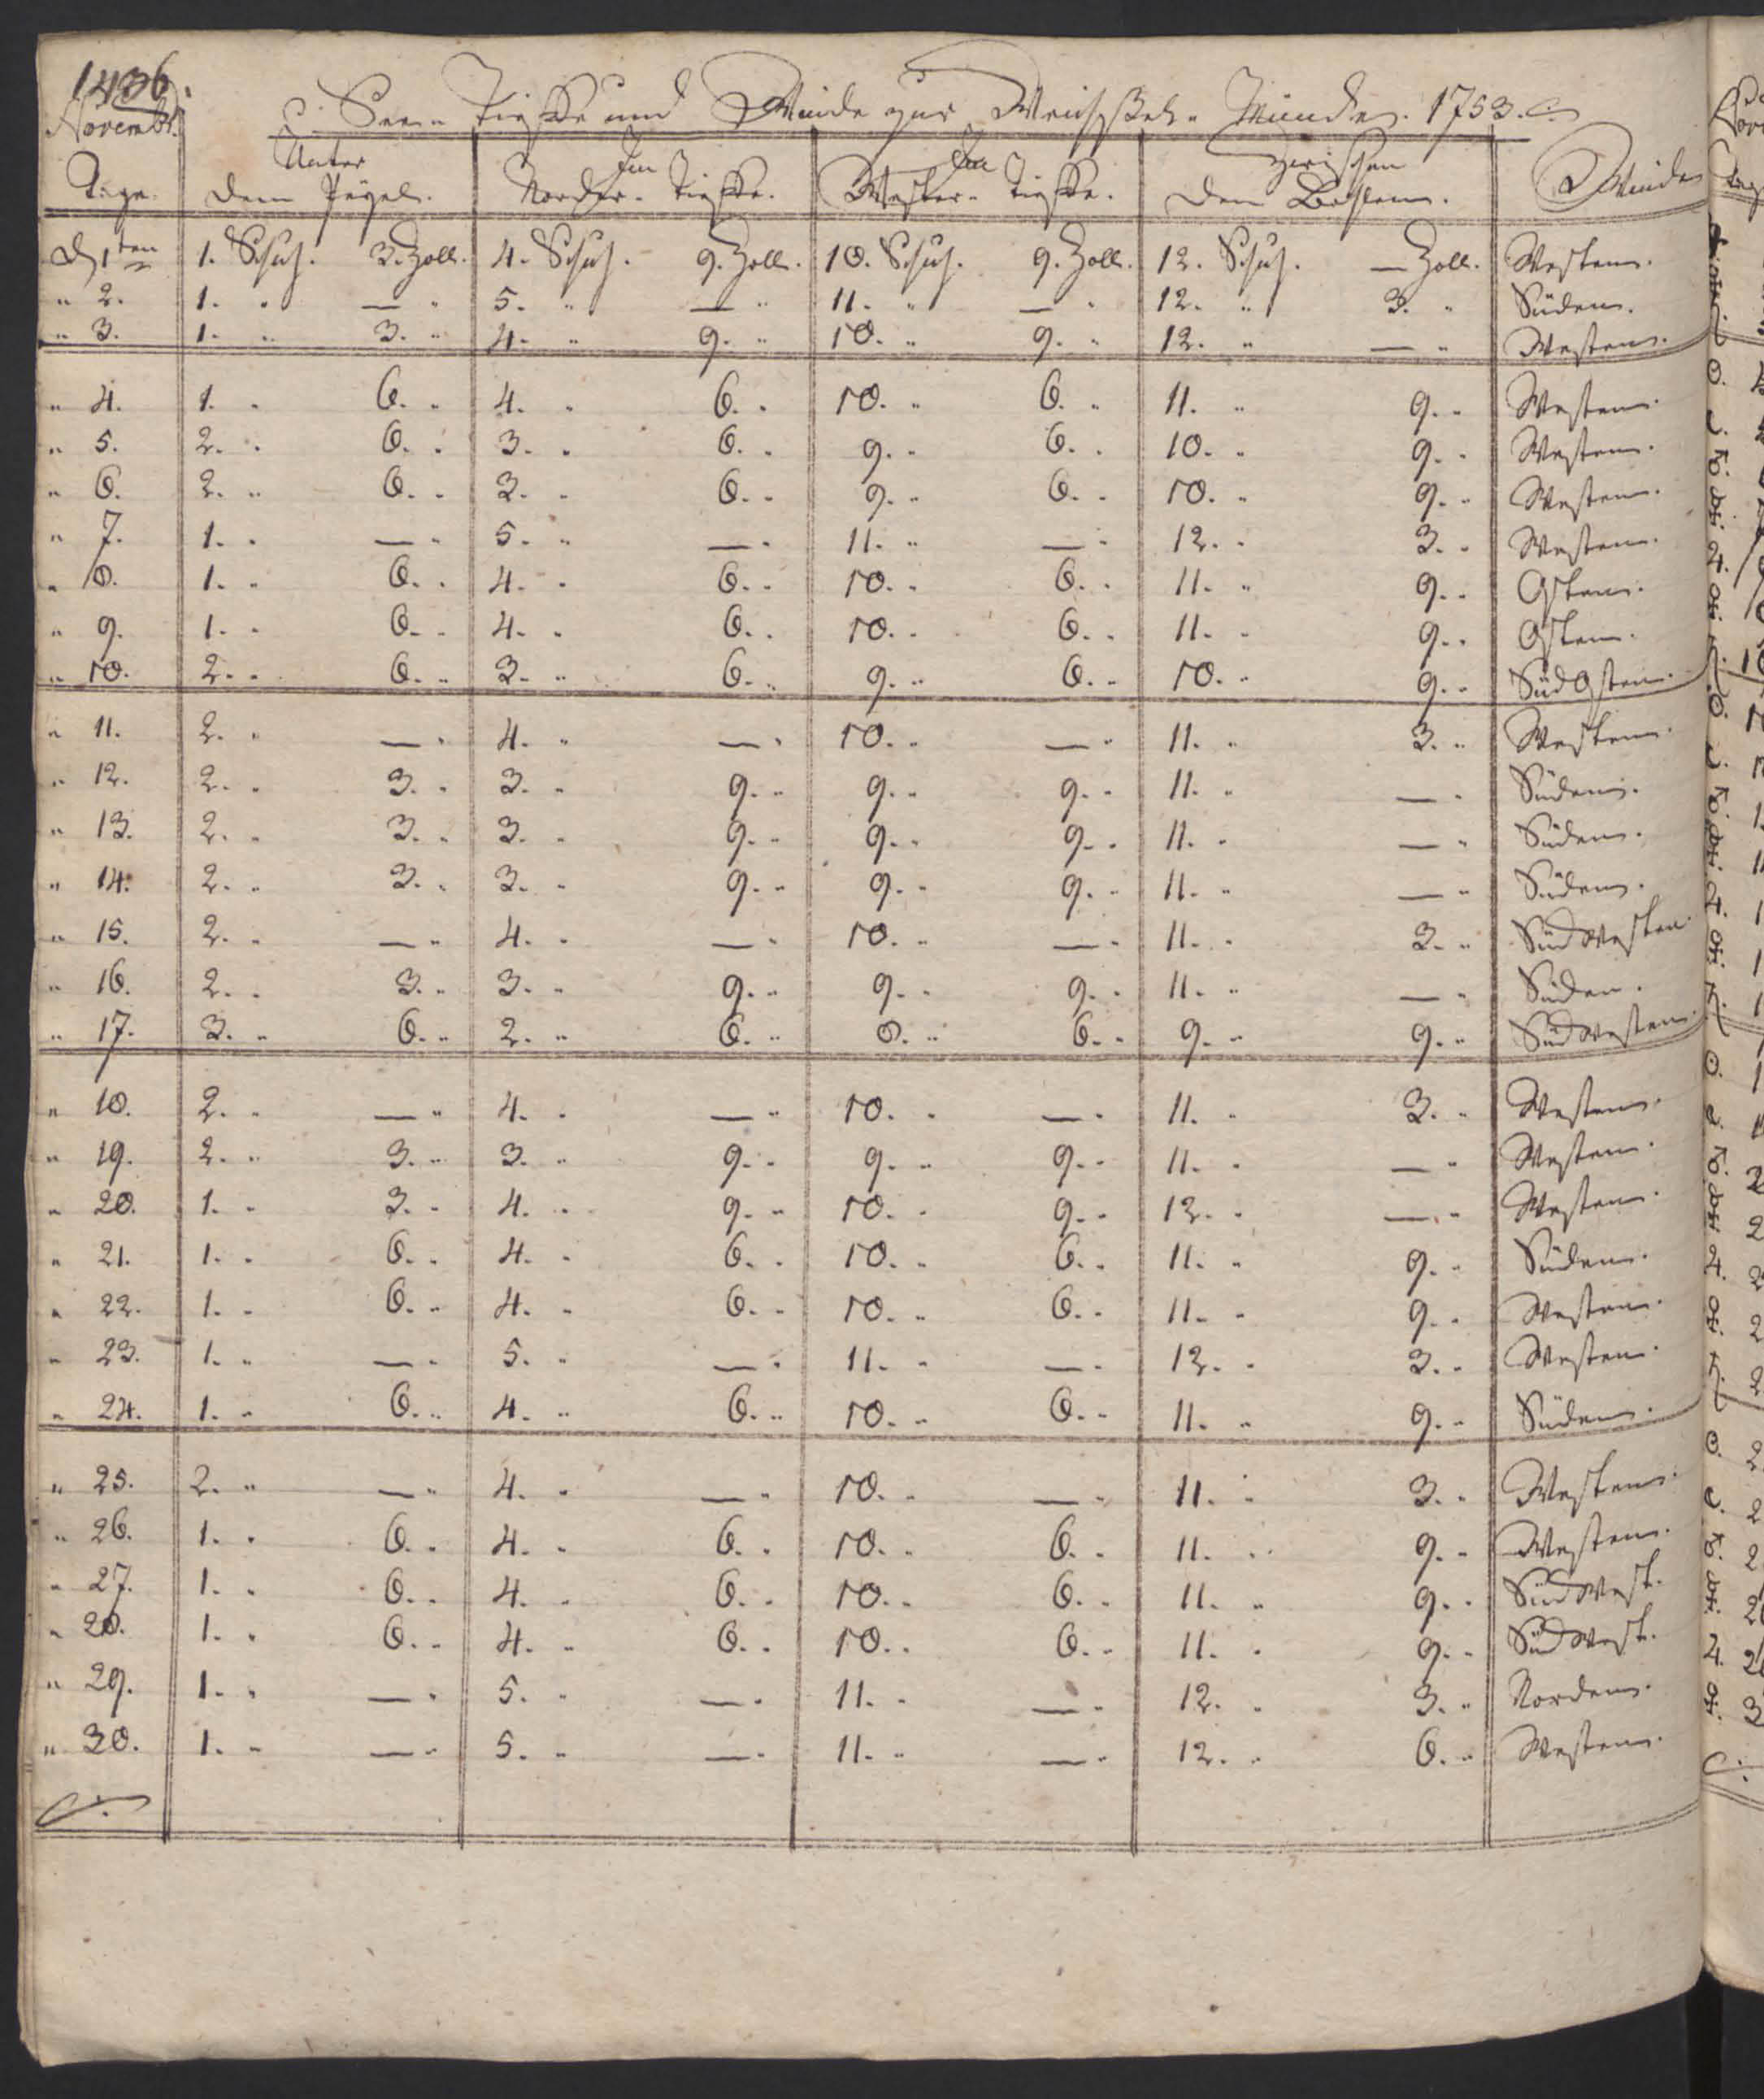 1436.
Novembr.
See- Tieffe und Winde zur Weichssel- Münde. 1753.
Unter Im Im Zwischen
Tage. dem Pegel. Norder- Tieffe. Wester- Tieffe. den Bohlen. Winde
D 1ten 1. Schuh. 3. Zoll. 4. Schuh. 9. Zoll. 10. Schuh. 9. Zoll. 12. Schuh. — Zoll. Westen.
" 2. 1. " — " 5. " — " 11. " — " 12. " 3. " Süden.
" 3. 1. " 3. " 4. " 9. " 10. " 9. " 12. " — " Westen.
" 4. 1. " 6. " 4. " 6. " 10. " 6. " 11. " 9. " Westen.
" 5. 2. " 6. " 3. " 6. " 9. " 6. " 10. " 9. " Westen.
" 6. 2. " 6. " 3. " 6. " 9. " 6. " 10. " 9. " Westen.
" 7. 1. " — " 5. " — " 11. " — " 12. " 3. " Westen.
" 8. 1. " 6. " 4. " 6. " 10. " 6. " 11. " 9. " Osten.
" 9. 1. " 6. " 4. " 6. " 10. " 6. " 11. " 9. " Osten.
" 10. 2. " 6. " 3. " 6. " 9. " 6. " 10. " 9. " Süd Osten.
" 11. 2. " — " 4. " — " 10. " — " 11. " 3. " Westen.
" 12. 2. " 3. " 3. " 9. " 9. " 9. " 11. " — " Süden.
" 13. 2. " 3. " 3. " 9. " 9. " 9. " 11. " — " Süden.
" 14. 2. " 3. " 3. " 9. " 9. " 9. " 11. " — " Süden.
" 15. 2. " — " 4. " — " 10. " — " 11. " 3. " Süd Westen.
" 16. 2. " 3. " 3. " 9. " 9. " 9. " 11. " — " Süden.
" 17. 3. " 6. " 2. " 6. " 8. " 6. " 9. " 9. " Süd Westen.
" 18. 2. " — " 4. " — " 10. " — " 11. " 3. " Westen.
" 19. 2. " 3. " 3. " 9. " 9. " 9. " 11. " — " Westen.
" 20. 1. " 3. " 4. " 9. " 10. " 9. " 12. " — " Westen.
" 21. 1. " 6. " 4. " 6. " 10. " 6. " 11. " 9. " Süden.
" 22. 1. " 6. " 4. " 6. " 10. " 6. " 11. " 9. " Westen.
" 23. 1. " — " 5. " — " 11. " — " 12. " 3. " Westen.
" 24. 1. " 6. " 4. " 6. " 10. " 6. " 11. " 9. " Süden.
" 25. 2. " — " 4. " — " 10. " — " 11. " 3. " Westen.
" 26. 1. " 6. " 4. " 6. " 10. " 6. " 11. " 9. " Westen.
" 27. 1. " 6. " 4. " 6. " 10. " 6. " 11. " 9. " Süd West.
" 28. 1. " 6. " 4. " 6. " 10. " 6. " 11. " 9. " Süd West.
" 29. 1. " — " 5. " — " 11. " — " 12. " 3. " Norden.
" 30. 1. " — " 5. " — " 11. " — " 12. " 6. " Westen.